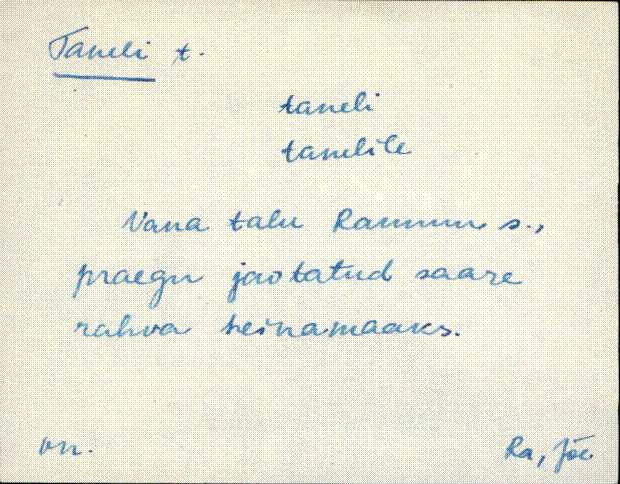 Taneli t.
taneli
tanelile
Vana talu Rammu s.,
praegu jaotatud saare
rahva heinamaaks.
vn.
Ra, Jõe